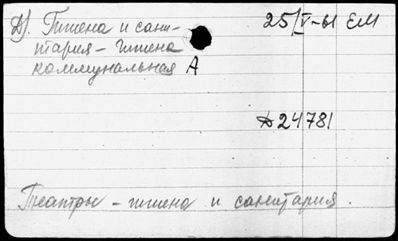 Д) Гигиена и сани-
тария - гигиена
коммунальная А
25/V-61 ЕМ
24781
Театры - гигиена и санитария.